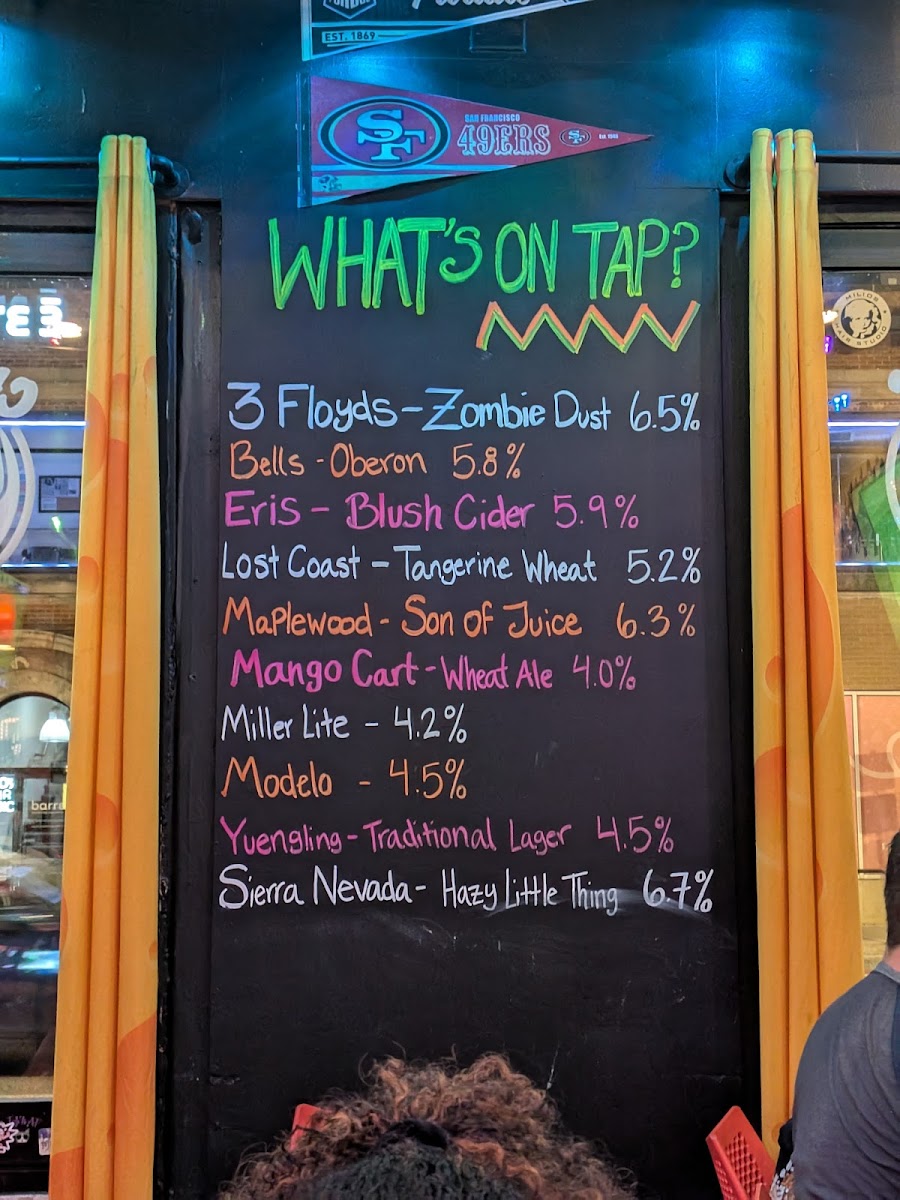 EST. 1869
SAN FRANCISCO
SF 49ERS SF Est. 1946
WHAT'S ON TAP?
3 Floyds - Zombie Dust 6.5%
Bells - Oberon 5.8%
Eris - Blush Cider 5.9%
Lost Coast - Tangerine Wheat 5.2%
Maplewood - Son of Juice 6.3%
Mango Cart - Wheat Ale 4.0%
Miller Lite - 4.2%
Modelo - 4.5%
Yuengling - Traditional Lager 4.5%
Sierra Nevada - Hazy Little Thing 6.7%
MILIOS
HAIR STUDIO
barr